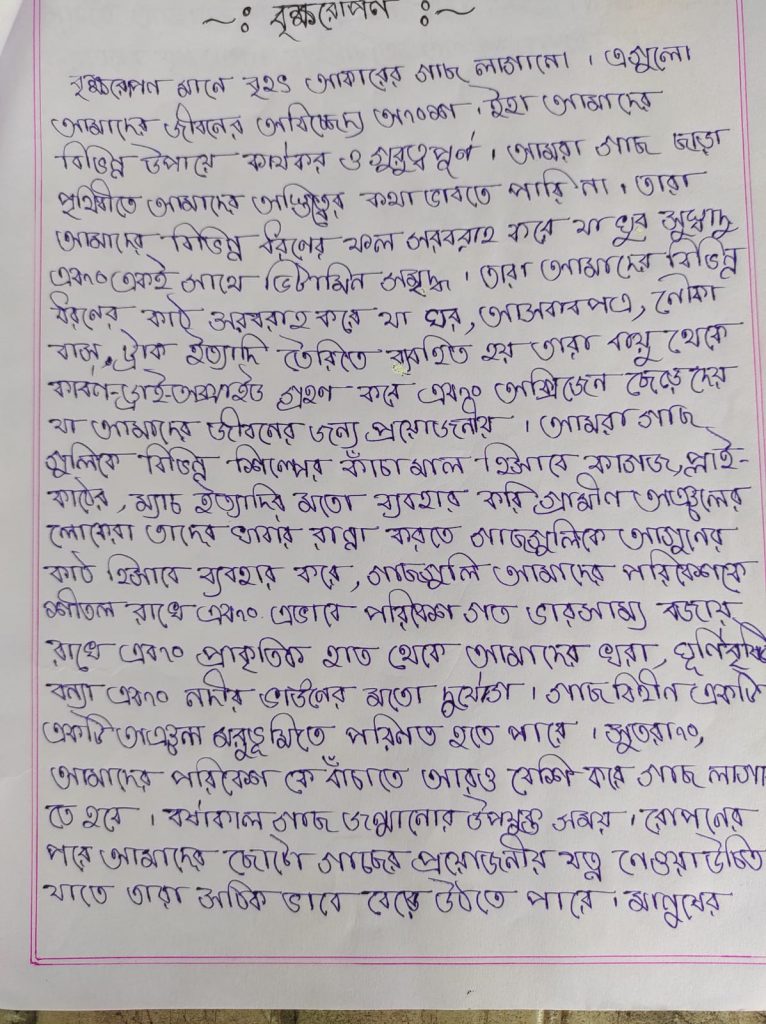 ~: বৃক্ষরোপন :~
বৃক্ষরোপন মানে বৃহৎ আকারের গাছ লাগানো। এগুলো
আমাদের জীবনের অবিচ্ছেদ্য অংশ। ইহা আমাদের
বিভিন্ন উপায়ে কার্যকর ও গুরুত্বপূর্ণ। আমরা গাছ ছাড়া
পৃথিবীতে আমাদের অস্তিত্বের কথা ভাবতে পারি না। তারা
আমাদের বিভিন্ন ধরণের ফল সরবরাহ করে যা খুব সুস্বাদু
এবং একই সাথে ভিটামিন সমৃদ্ধ। তারা আমাদের বিভিন্ন
ধরণের কাঠ সরবরাহ করে যা ঘর, আসবাবপত্র, নৌকা
বাস, ট্রাক ইত্যাদি তৈরিতে ব্যবহিত হয় তারা বায়ু থেকে
কার্বণ-ড্রাই-অক্সাইড গ্রহণ করে এবং অক্সিজেন ছেড়ে দেয়
যা আমাদের জীবনের জন্য প্রয়োজনীয়। আমরা গাছ
গুলিকে বিভিন্ন শিল্পের কাঁচামাল হিসাবে কাগজ, প্লাই-
কাঠের, ম্যাচ ইত্যাদির মতো ব্যবহার করি গ্রামীণ অঞ্চলের
লোকেরা তাদের খাবার রান্না করতে গাছগুলিকে আগুনের
কাঠ হিসাবে ব্যবহার করে, গাছগুলি আমাদের পরিবেশকে
শীতল রাখে এবং এভাবে পরিবেশ গত ভারসাম্য বজায়
রাখে এবং প্রাকৃতিক হাত থেকে আমাদের খরা, ঘূর্ণিবৃষ্টি
বন্যা এবং নদীর ভাঙনের মতো দুর্যোগ। গাছ বিহীন একটি
একটি অঞ্চল মরুভূমিতে পরিনত হতে পারে। সুতরাং,
আমাদের পরিবেশ কে বাঁচাতে আরও বেশি করে গাছ লাগা
তে হবে। বর্ষাকাল গাছ জন্মানোর উপযুক্ত সময়। রোপনের
পরে আমাদের ছোটো গাছের প্রয়োজনীয় যত্ন নেওয়া উচিত
যাতে তারা সঠিক ভাবে বেড়ে উঠতে পারে। মানুষের